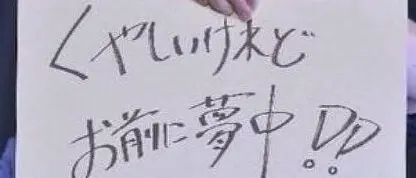 くやしいけれど
お前に夢中!!